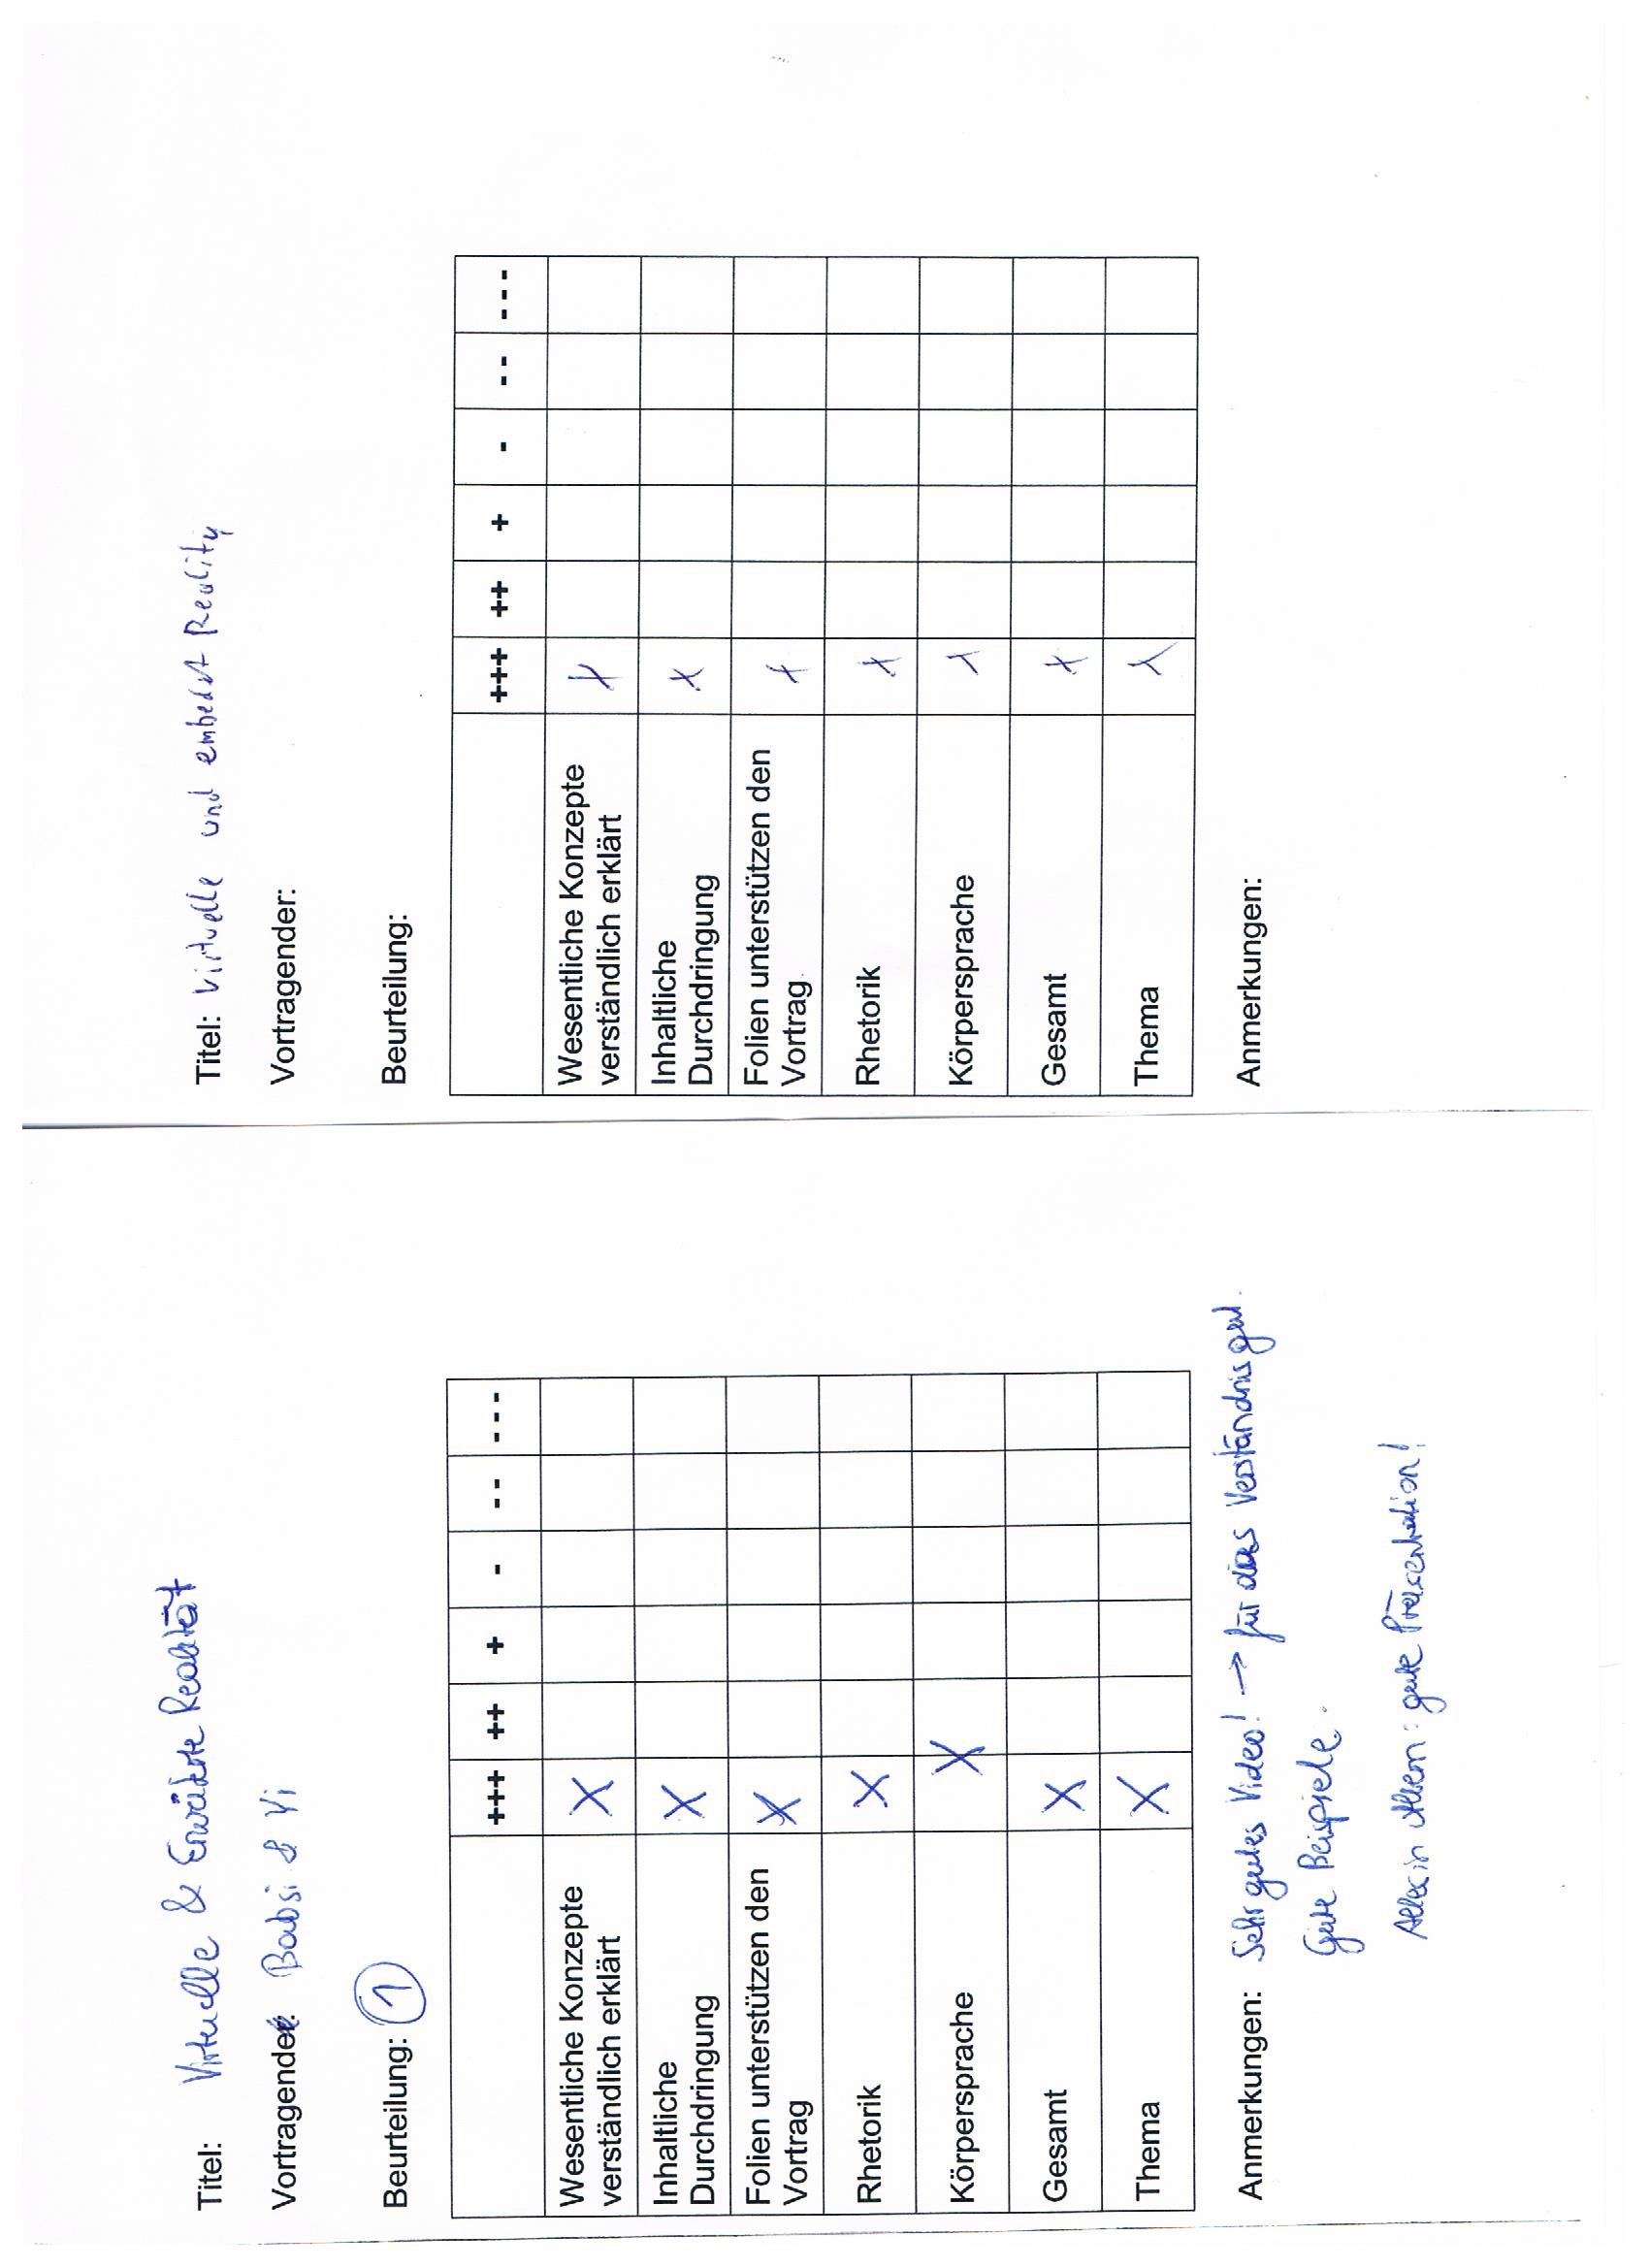 Titel: Virtuelle & Erweiterte Realität
Vortragende: Babsi & Yi
Beurteilung: 1
+++ ++ + - -- ---
Wesentliche Konzepte
verständlich erklärt X
Inhaltliche
Durchdringung X
Folien unterstützen den
Vortrag X
Rhetorik X
Körpersprache X
Gesamt X
Thema X
Anmerkungen: Sehr gutes Video! → für das Verständnis gut.
Gute Beispiele.
Alles in Allem: gute Präsentation!
Titel: Virtuelle und embedet Reality
Vortragender:
Beurteilung:
+++ ++ + - -- ---
Wesentliche Konzepte
verständlich erklärt X
Inhaltliche
Durchdringung X
Folien unterstützen den
Vortrag X
Rhetorik X
Körpersprache X
Gesamt X
Thema X
Anmerkungen: